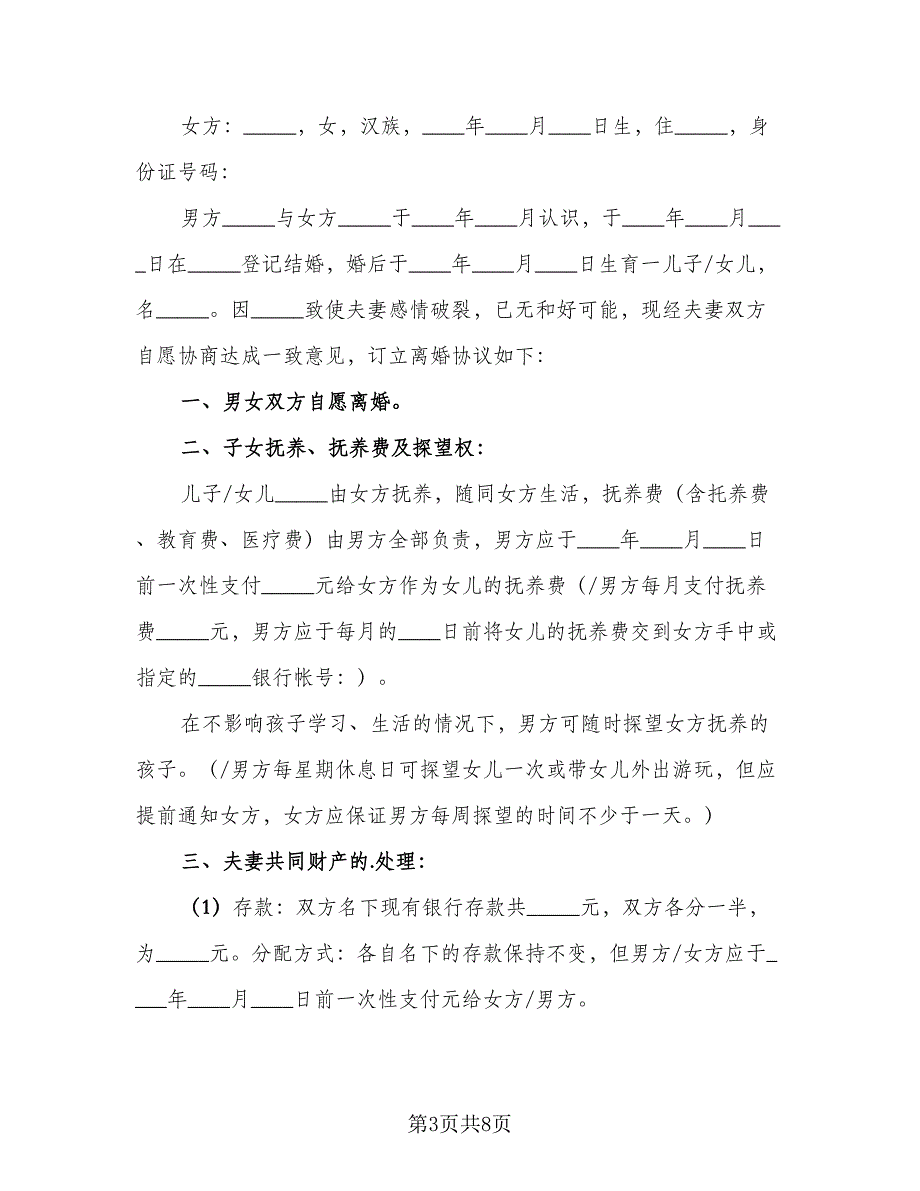 女方：_____，女，汉族，____年____月____日生，住_____，身
份证号码：
男方_____与女方_____于____年____月认识，于____年____月___
_日在_____登记结婚，婚后于____年____月____日生育一儿子/女儿，
名_____。因_____致使夫妻感情破裂，已无和好可能，现经夫妻双方
自愿协商达成一致意见，订立离婚协议如下：
一、男女双方自愿离婚。
二、子女抚养、抚养费及探望权：
儿子/女儿_____由女方抚养，随同女方生活，抚养费（含托养费
、教育费、医疗费）由男方全部负责，男方应于____年____月____日
前一次性支付_____元给女方作为女儿的抚养费（/男方每月支付抚养
费_____元，男方应于每月的____日前将女儿的抚养费交到女方手中或
指定的_____银行帐号：）。
在不影响孩子学习、生活的情况下，男方可随时探望女方抚养的
孩子。（/男方每星期休息日可探望女儿一次或带女儿外出游玩，但应
提前通知女方，女方应保证男方每周探望的时间不少于一天。）
三、夫妻共同财产的.处理：
（1）存款：双方名下现有银行存款共_____元，双方各分一半，
为_____元。分配方式：各自名下的存款保持不变，但男方/女方应于_
___年____月____日前一次性支付元给女方/男方。
第3页共8页